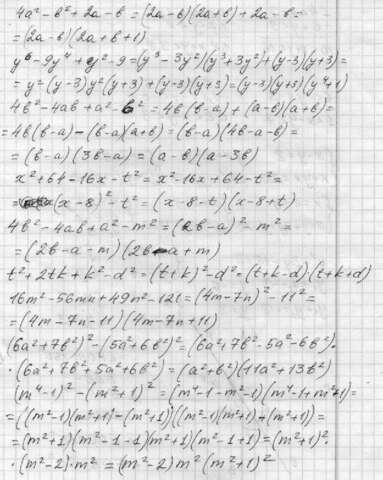 4a² - b² + 2a - b = (2a-b)(2a+b) + 2a - b =
= (2a-b)(2a+b+1)
y⁶ - 9y⁴ + y² - 9 = (y³ - 3y²)(y³+3y²) + (y-3)(y+3) =
= y²(y-3)y²(y+3) + (y-3)(y+3) = (y-3)(y+3)(y⁴+1)
4b² - 4ab + a² - b² = 4b(b-a) + (a-b)(a+b) =
= 4b(b-a) - (b-a)(a+b) = (b-a)(4b-a-b) =
= (b-a)(3b-a) = (a-b)(a-3b)
x² + 64 - 16x - t² = x² - 16x + 64 - t² =
= (x-8)² - t² = (x-8-t)(x-8+t)
4b² - 4ab + a² - m² = (2b-a)² - m² =
= (2b-a-m)(2b-a+m)
t² + 2tk + k² - d² = (t+k)² - d² = (t+k-d)(t+k+d)
16m² - 56mn + 49n² - 121 = (4m-7n)² - 11² =
= (4m-7n-11)(4m-7n+11)
(6a²+7b²)² - (5a²+6b²)² = (6a²+7b²-5a²-6b²)·
·(6a²+7b²+5a²+6b²) = (a²+b²)(11a²+13b²)
(m⁴-1)² - (m²+1)² = (m⁴-1-m²-1)(m⁴-1+m²+1) =
= ((m²-1)(m²+1)-(m²+1))((m²-1)(m²+1)+(m²+1)) =
= (m²+1)(m²-1-1)(m²+1)(m²-1+1) = (m²+1)²·
·(m²-2)·m² = (m²-2)m²(m²+1)²